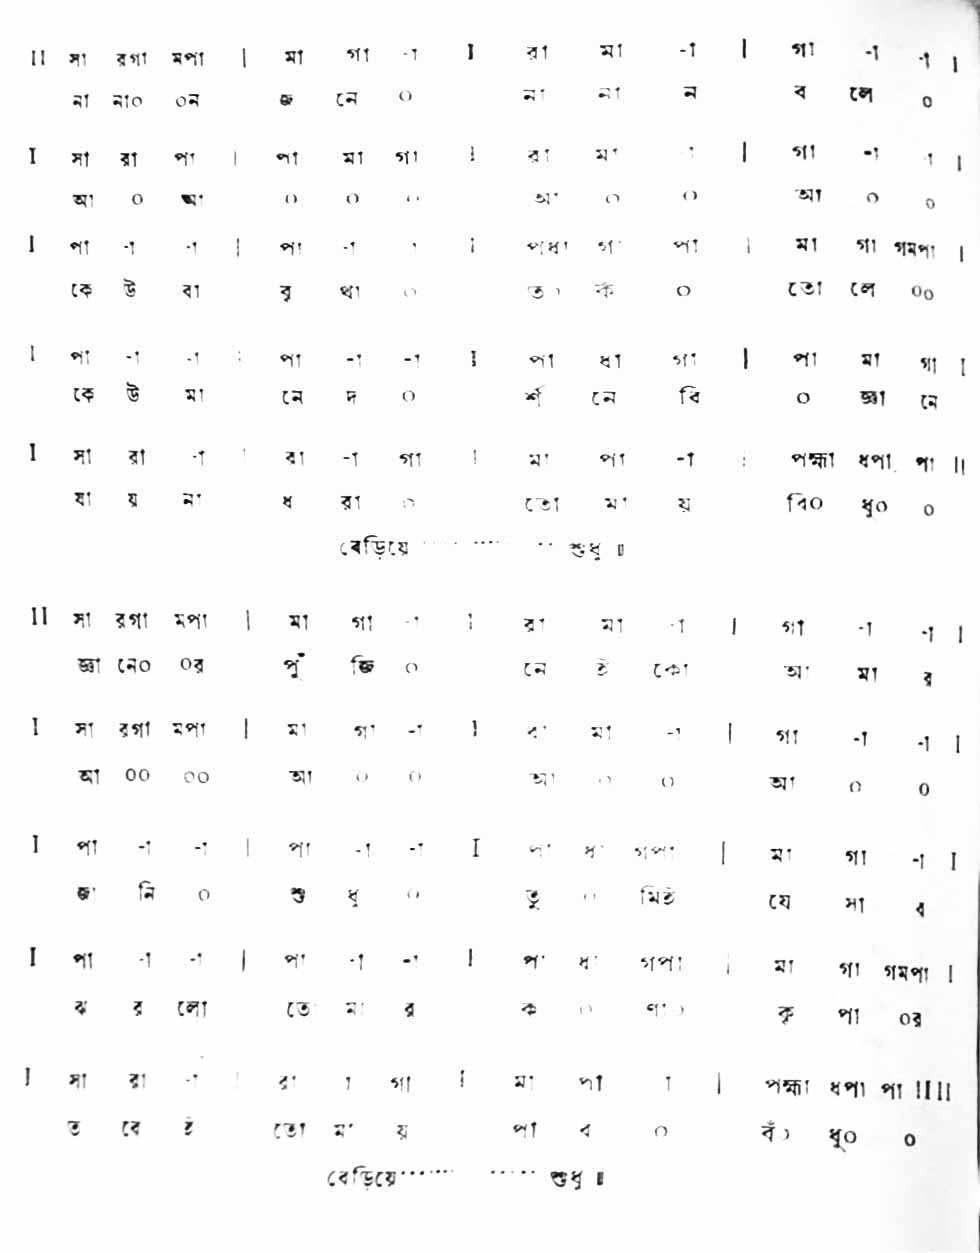 II সা রগা মপা | মা গা -া I রা মা -া | গা -া -া I
না না০ ০ন জ নে ০ না না ন ব লে ০
I সা রা পা | পা মা গা I রা মা -া | গা -া -া I
আ ০ আ ০ ০ ০ আ ০ ০ আ ০ ০
I পা -া -া | পা -া -া I পধা গা পা | মা গা গমপা I
কে উ বা বৃ থা ০ ত০ র্ক ০ তো লে ০০
I পা -া -া | পা -া -া I পা ধা গা | পা মা গা I
কে উ মা নে দ ০ র্শ নে বি ০ জ্ঞা নে
I সা রা -া | রা -া গা I মা পা -া | পহ্মা ধপা পা II
যা য় না ধ রা ০ তো মা য় বি০ ধু০ ০
বেড়িয়ে ......... শুধু ॥
II সা রগা মপা | মা গা -া I রা মা -া | গা -া -া I
জ্ঞা নে০ ০র পুঁ জি ০ নে ই কো আ মা র
I সা রগা মপা | মা গা -া I রা মা -া | গা -া -া I
আ ০০ ০০ আ ০ ০ আ ০ ০ আ ০ ০
I পা -া -া | পা -া -া I পা ধা গপা | মা গা -া I
জা নি ০ শু ধু ০ তু ০ মিই যে সা র
I পা -া -া | পা -া -া I পা ধা গপা | মা গা গমপা I
ঝ র লো তো মা র ক ০ ণা০ কৃ পা ০র
I সা রা -া | রা া গা I মা পা া | পহ্মা ধপা পা IIII
ত বে ই তো মা য় পা ব ০ বঁ০ ধু০ ০
বেড়িয়ে....... ...... শুধু ॥